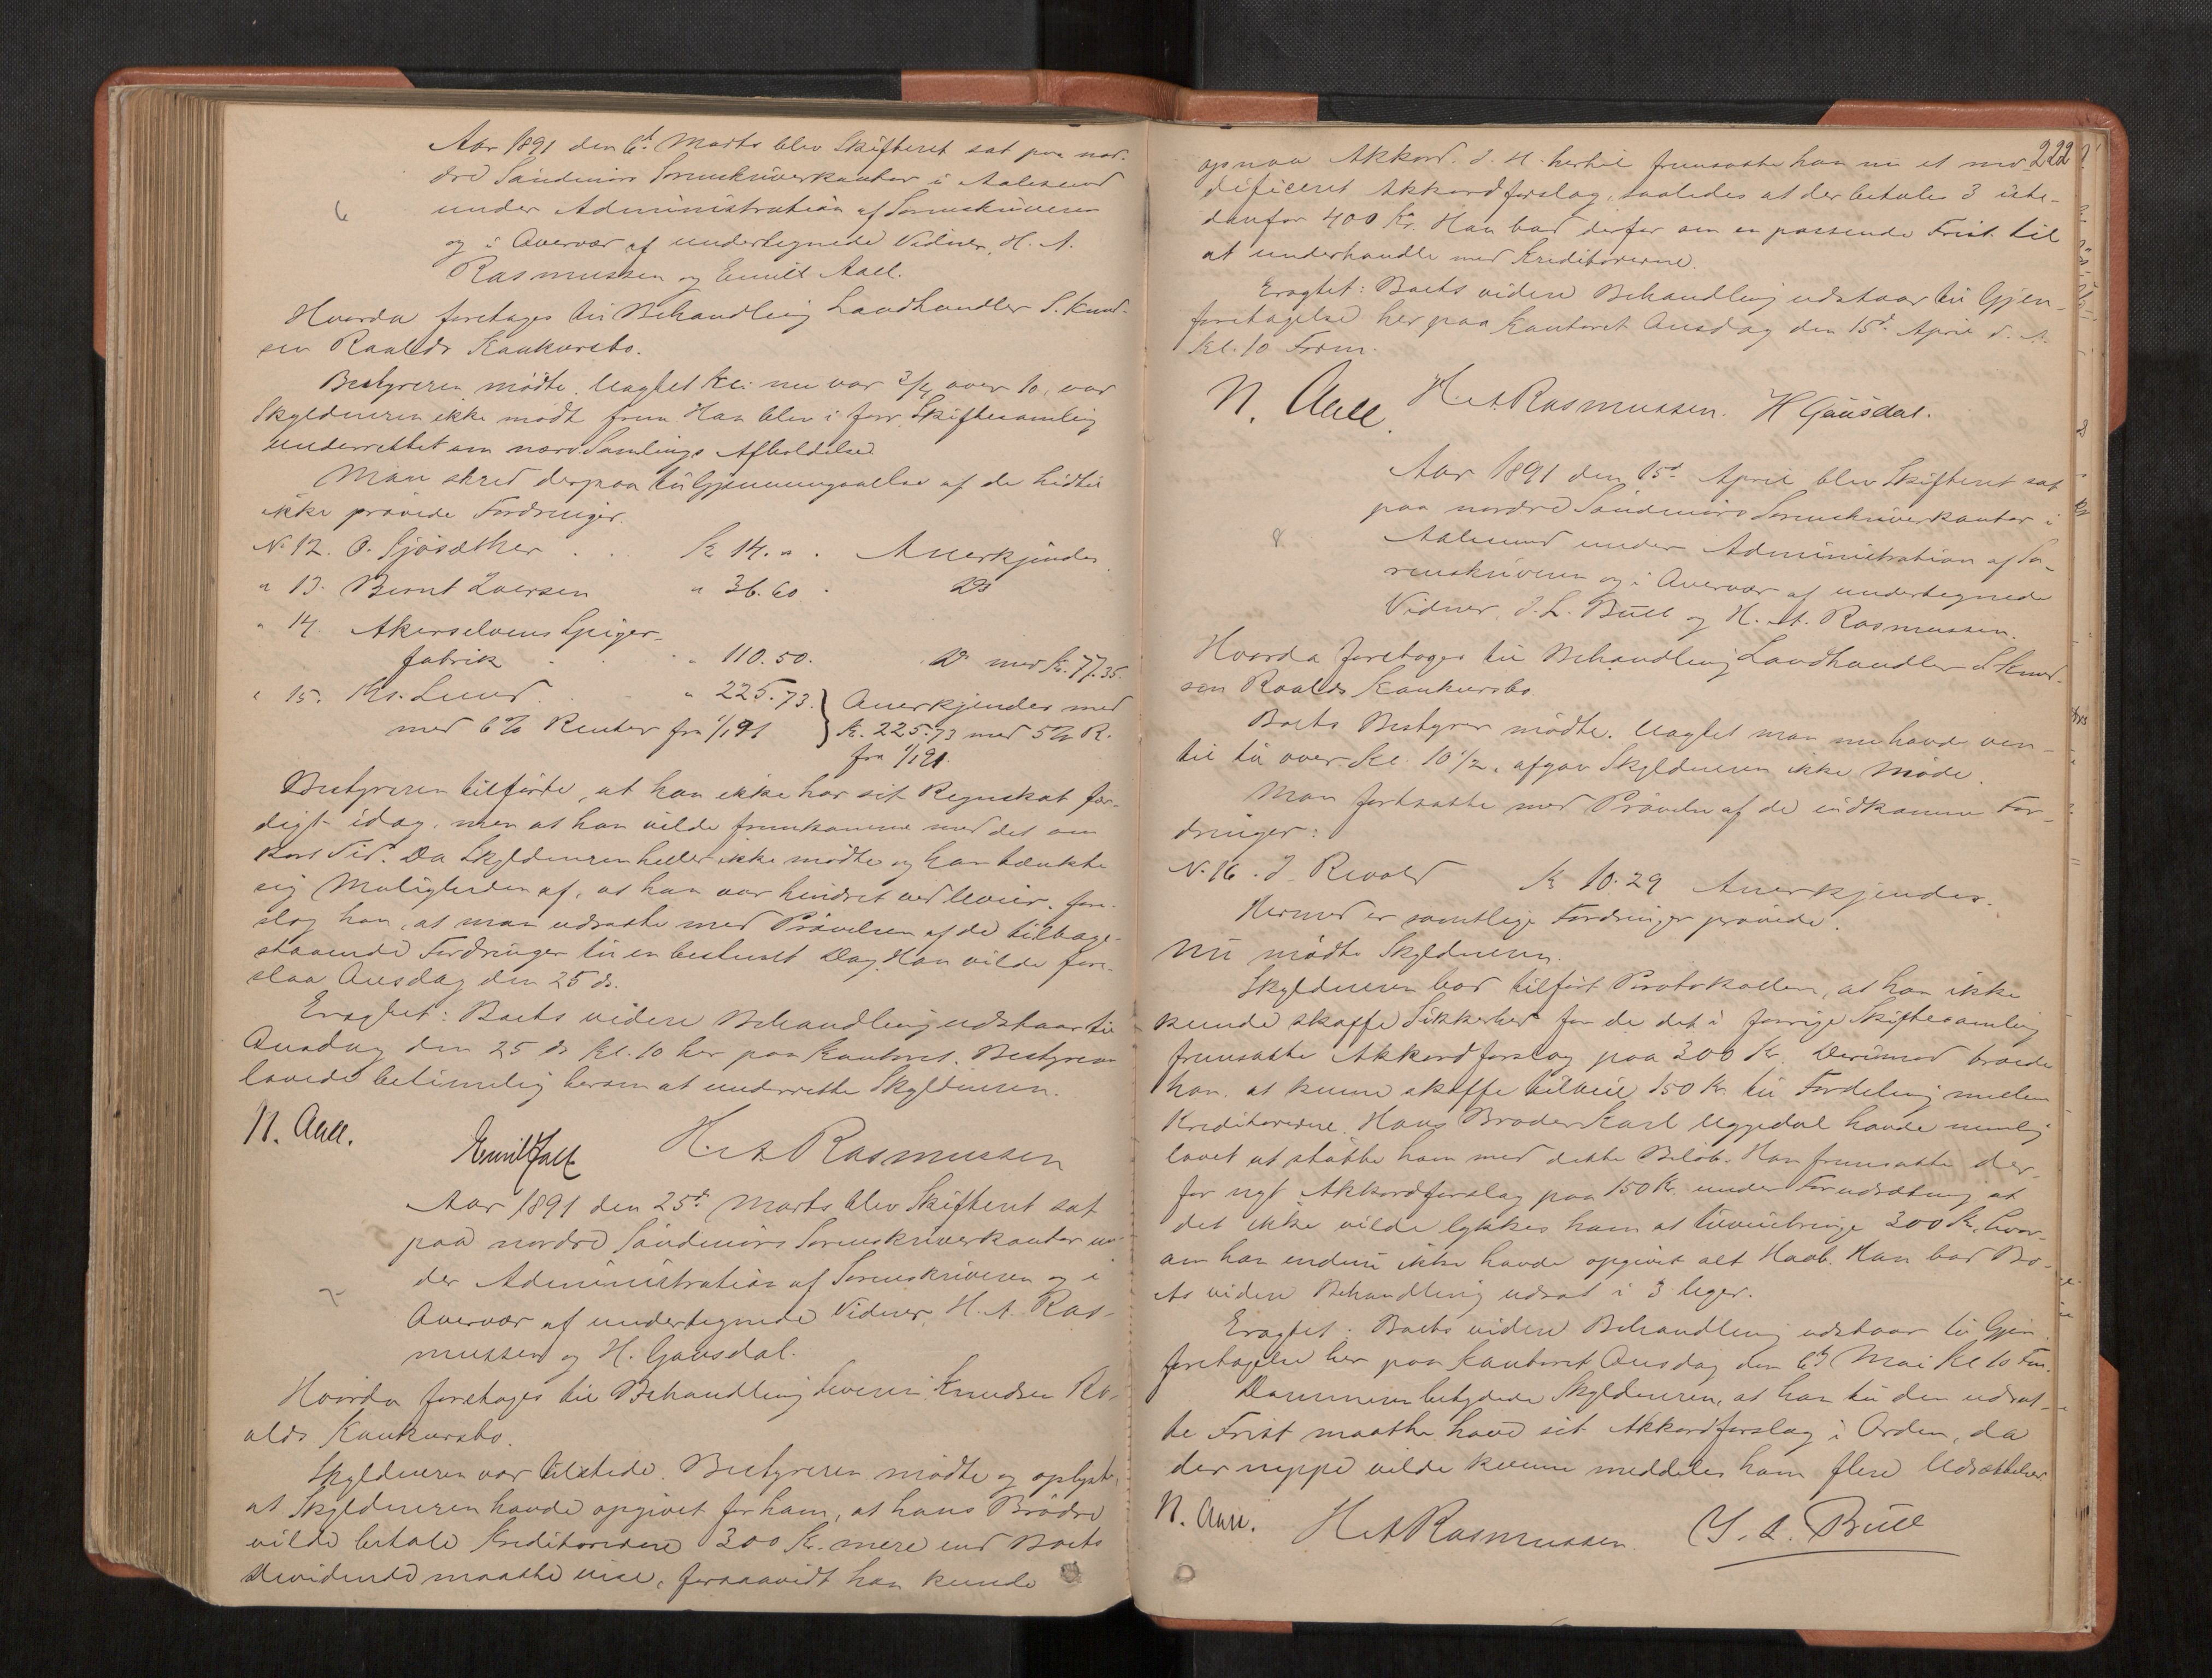 Aar 1891 den 6t Marts blev Skifteret sat paa nor-
dre Søndmørs Sorenskriverkontor i Aalesund
6
under Administration af Sorenskriveren
og i Overvær af undertegnede Vidner, H. A.
Rasmussen og Emill Aall.
Hvorda foretages til Behandling Landhandler S. Knud-
sen Roalds Konkursbo.
Bestyreren mødte. Uagtet Kl. nu var 3/4 over 10, var
Skyldneren ikke mødt frem. Han blev i forr. Skiftesamling
underrettet om nærv. Samlings Afholdelse.
Man skred derpaa til Gjennemgaaelse af de hidtil
ikke prøvede Fordringer.
No 12. O. Gjøsæther . . Kr 14. " . Anerkjendes.
" 13. Bernt Iversen " 36.60 . Do
" 14. Akerselvens Spiger-
fabrik . . " 110.50. Do med Kr. 77.35.
" 15. Ths. Lund . . " 225.73. } Anerkjendes med
med 6 % Renter fra 1/1 91 } Kr. 225.73 med 5 % R.
fra 1/1 91.
Bestyreren tilførte, at han ikke har sit Regnskab fær-
digt idag, men at han vilde fremkomme med det om
kort Tid. Da Skyldneren heller ikke mødte og han tænkte
sig Muligheden af, at han var hindret ved Uveir, fore-
slog han, at man udsatte med Prøvelsen af de tilbage-
staaende Fordringer til en bestemt Dag. Han vilde fore-
slaa Onsdag den 25 ds.
Eragtet: Boets videre Behandling udstaar til
Onsdag den 25 ds Kl. 10 her paa Kontoret. Bestyreren
lovede betimelig herom at underrette Skyldneren.
N. Aall.
Emill Aall H. A. Rasmussen
Aar 1891 den 25d Marts blev Skifteret sat
paa nordre Søndmørs Sorenskriverkontor un-
der Administration af Sorenskriveren og i
7
Overvær af undertegnede Vidner, H. A. Ras-
mussen og H. Gausdal.
Hvorda foretages til Behandling Severin Knudsen Ro-
alds Konkursbo.
Skyldneren var tilstede. Bestyreren mødte og oplyste,
at Skyldneren havde opgivet for ham, at hans Brødre
vilde betale Kreditorerne 300 Kr. mere end Boets
Dividende maatte vise, forsaavidt han kunde
222
opnaa Akkord. I H. hertil fremsatte han nu et mo-
dificeret Akkordforslag, saaledes at der betales 3 iste-
danfor 400 Kr. Han bad derfor om en passende Frist til
at underhandle med Kreditorerne.
Eragtet: Boets videre Behandling udstaar til Gjen-
foretagelse her paa Kontoret Onsdag den 15d April d. A.
Kl. 10 Form.
N. Aall. H. A. Rasmussen. H Gausdal.
Aar 1891 den 15d April blev Skifteret sat
paa nordre Søndmørs Sorenskriverkontor i
8
Aalesund under Administration af So-
renskriveren og i Overvær af undertegnede
Vidner, J. L. Bull og H. A. Rasmussen.
Hvorda foretages til Behandling Landhandler S Knud-
sen Roalds Konkursbo.
Boets Bestyrer mødte. Uagtet man nu havde ven-
tet til over Kl. 10 1/2, afgav Skyldneren ikke Møde.
Man fortsatte med Prøvelse af de indkomne For-
dringer:
No. 16. J. Revold Kr 10.29 Anerkjendes.
Hermed er samtlige Fordringer prøvede.
Nu mødte Skyldneren.
Skyldneren bad tilført Protokollen, at han ikke
kunde skaffe Sikkerhed for de det i forrige Skiftesamling
fremsatte Akkordforslag paa 300 Kr. Derimod troede
han at kunne skaffe tilveie 150 Kr. til Fordeling mellem
Kreditorerne. Hans Broder Karl Uggedal havde nemlig
lovet at støtte ham med dette Beløb. Han fremsatte der-
for nyt Akkordforslag paa 150 Kr. under Forudsætning at
det ikke vilde lykkes ham at tilveiebringe 300 Kr. hvor-
om han endnu ikke havde opgivet alt Haab. Han bad Bo-
ets videre Behandling udsat i 3 Uger.
Eragtet: Boets videre Behandling udstaar til Gjen-
foretagelse her paa Kontoret Onsdag den 6te Mai Kl 10 Fm.
Dommeren betydede Skyldneren, at han til den udsat-
te Frist maatte have sit Akkordforslag i Orden, da
der neppe vilde kunne meddeles ham flere Udsættelser.
N. Aall. H. A Rasmussen. J. L. Bull